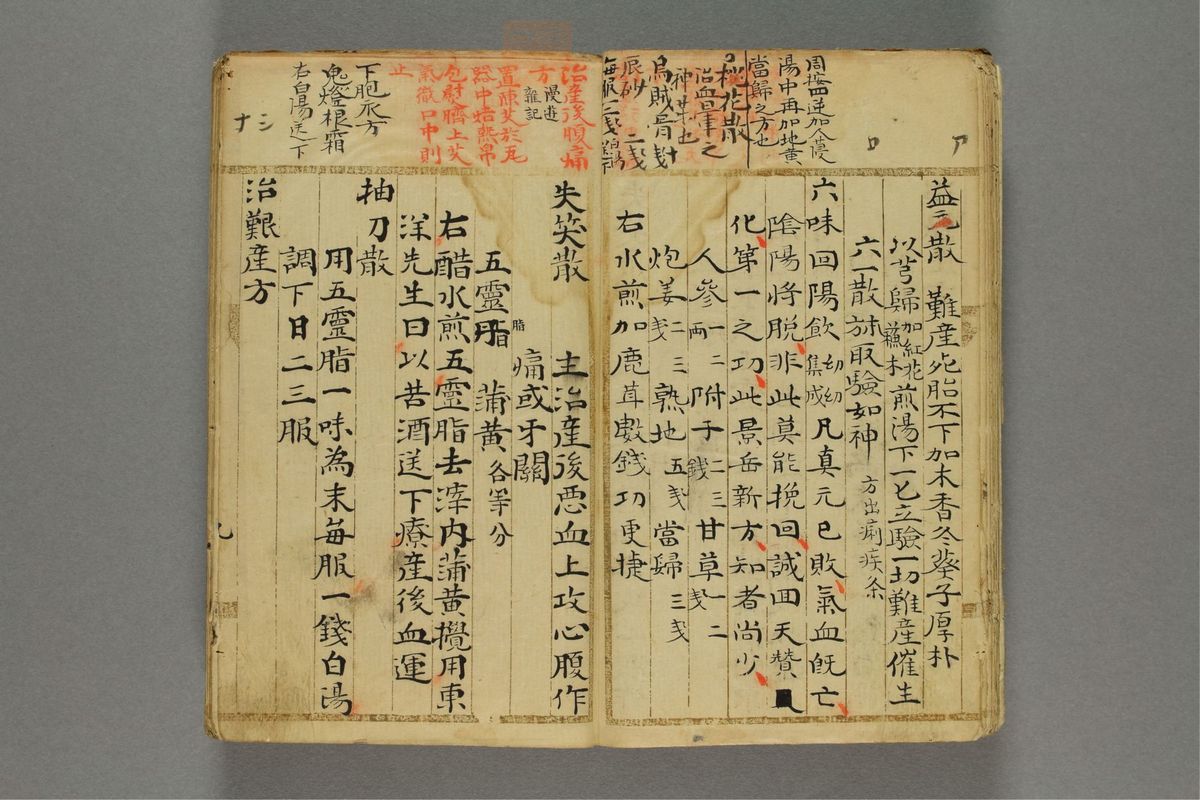 周按四逆加人葠
湯中再加地黄
當歸之方也
桃花散
治血暈之
神方也
烏賊骨
辰砂 二戋
每服二戋
ア
ロ
益元散 難産死胎不下加木香冬葵子厚朴
以芎歸加紅花蘇木煎湯下一匕立驗一切難産催生
六一散亦取驗如神 方出痢疾条
六味回陽飲 集成 凡真元已敗氣血既亡
陰陽将脱非此莫能挽回誠回天賛
化第一之功此景岳新方知者尚少
人參一二兩 附子二三錢 甘草一二戋
炮姜二三戋 熟地五戋 當歸三戋
右水煎加鹿茸數錢功更捷
治産後腹痛
方 漫遊雜記
置陳艾於瓦
器中焙熱帛
包熨臍上艾
氣徹口中則
止
下胞衣方
鬼燈根霜
右白湯送下
シ
ナ
失笑散 主治産後悪血上攻心腹作
痛或牙關
五靈脂 蒲黄 各等分
右醋水煎五靈脂去滓内蒲黄攪用東
洋先生曰以苦酒送下療産後血運
抽刀散
用五靈脂一味為末每服一錢白湯
調下日二三服
治艱産方
九